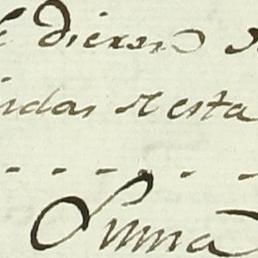 dieron
idas desta
Suma